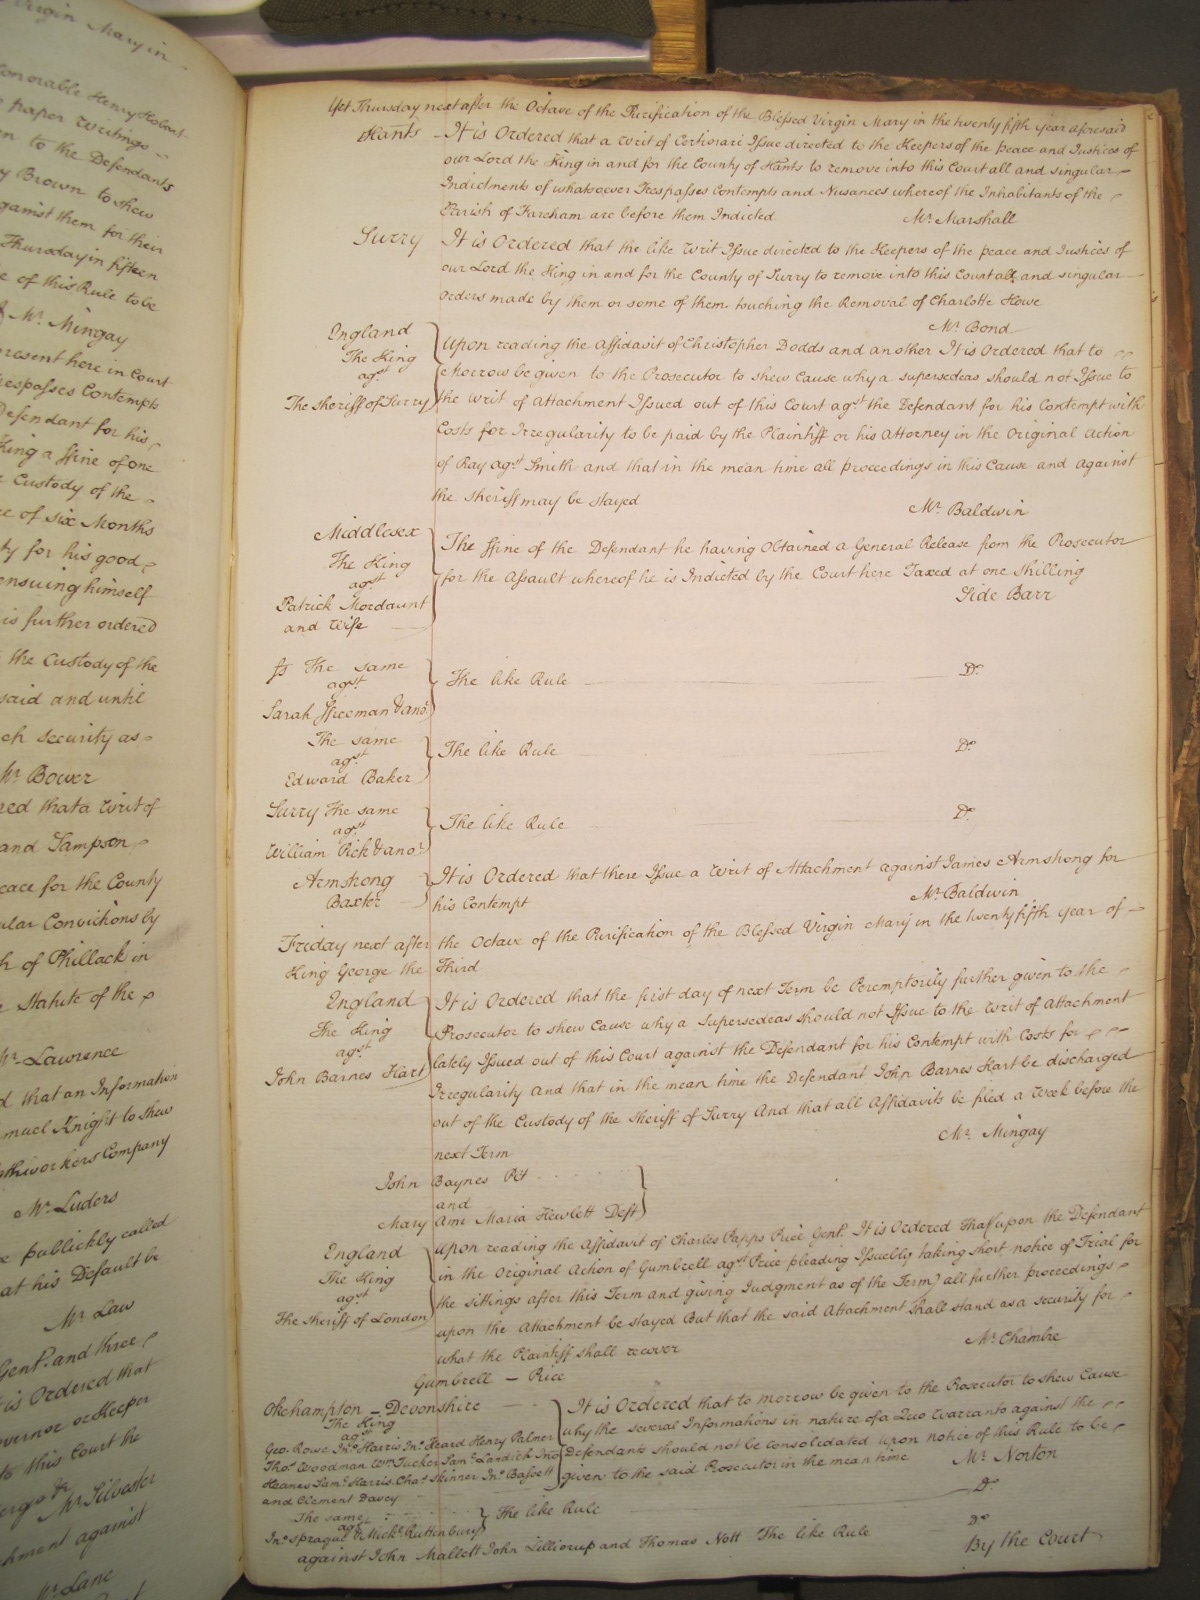 Virgin Mary in
Honorable Henry Hobart
paper Writings
to the Defendants
Brown to shew
against them for their
Thursday in fifteen
of this Rule to be
Mr. Mingay
present here in Court
Trespasses Contempts
Defendant for his
King a ffine of one
Custody of the
of six Months
for his good
ensuing himself
is further ordered
the Custody of the
said and until
such Security as
Mr. Bower
that a Writ of
and Sampson
for the County
Convictions by
of Phillack in
Statute of the
Mr. Lawrence
that an Information
Knight to shew
Company
Mr. Luders
publickly called
at his Default be
Mr. Law
Gent. and three
is Ordered that
Governor or Keeper
to this Court the
Mr. Silvester
against
Mr. Lane
Yet Thursday next after the Octave of the Purification of the Blessed Virgin Mary in the twenty fifth year aforesaid
Hants - It is Ordered that a Writ of Certiorari Issue directed to the Keepers of the peace and Justices of
our Lord the King in and for the County of Hants to remove into this Court all and singular
Indictments of whatsoever Trespasses Contempts and Nusances whereof the Inhabitants of the
Parish of Fareham are before them Indicted Mr. Marshall
Surry It is Ordered that the like Writ Issue directed to the Keepers of the peace and Justices of
our Lord the King in and for the County of Surry to remove into this Court all and singular
Orders made by them or some of them touching the Removal of Charlotte Howe
Mr. Bond
England
The King
agst
The Sheriff of Surry
Upon reading the Affidavit of Christopher Dodds and another It is Ordered that to
Morrow be given to the Prosecutor to shew Cause why a supersedeas should not Issue to
the Writ of Attachment Issued out of this Court agst the Defendant for his Contempt with
Costs for Irregularity to be paid by the Plaintiff or his Attorney in the Original Action
of Ray agst Smith and that in the mean time all proceedings in this Cause and against
the Sheriff may be stayed
Mr. Baldwin
Middlesex
The King
agst
Patrick Mordaunt
and Wife
The ffine of the Defendant he having Obtained a General Release from the Prosecutor
for the Assault whereof he is Indicted by the Court here Taxed at one Shilling
Side Barr
The same
agst
Sarah ffreeman & anor.
The like Rule Do.
The same
agst
Edward Baker
The like Rule Do.
Surry The same
agst
William Pick & anor.
The like Rule Do.
Armstrong
Baxter
It is Ordered that there Issue a Writ of Attachment against James Armstrong for
his Contempt Mr. Baldwin
Friday next after the Octave of the Purification of the Blessed Virgin Mary in the twenty fifth year of
King George the Third
England
The King
agst
John Barnes Hart
It is Ordered that the first day of next Term be Peremptorily further given to the
Prosecutor to shew Cause why a Supersedeas should not Issue to the Writ of Attachment
lately Issued out of this Court against the Defendant for his Contempt with Costs for
Irregularity And that in the mean time the Defendant John Barnes Hart be discharged
out of the Custody of the Sheriff of Surry And that all Affidavits be filed a Week before the
next Term
Mr. Mingay
John Baynes Plt
and
Mary Ann Maria Hewlett Deft
England
The King
agst
The Sheriff of London
Upon reading the Affidavit of Charles Papps Price Gent. It is Ordered That (upon the Defendant
in the Original Action of Gumbrell agst Price pleading Issuably taking short notice of Trial for
the sittings after this Term and giving Judgment as of the Term) all further proceedings
upon the Attachment be stayed But that the said Attachment shall stand as a security for
what the Plaintiff shall recover
Mr. Chambre
Gumbrell - Price
Okehampton - Devonshire
The King
agst
Geo. Rowe Jno. Harris Jno. Heard Henry Palmer
Thos. Woodman Wm. Tucker Saml. Landick Jno.
Heanes Saml. Harris Chas. Skinner Jno. Bassett
and Clement Davey
It is Ordered that to Morrow be given to the Prosecutor to shew Cause
why the several Informations in nature of a Quo Warranto against the
Defendants should not be consolidated upon notice of this Rule to be
given to the said Prosecutor in the mean time Mr. Norton
The same
agst
Jno. Sprague & Michl. Ruttenbury
The like Rule Do.
against John Mallett John Lillicrup and Thomas Nott The like Rule Do.
By the Court